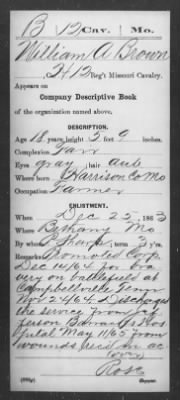 B 12 Cav. Mo.
William A Brown
, 12 Reg't Missouri Cavalry.
Appears on
Company Descriptive Book
of the organization named above.
DESCRIPTION.
Age 18 years; height 5 feet 9 inches.
Complexion Fair
Eyes gray; hair aub
Where born Harrison Co Mo
Occupation Farmer
ENLISTMENT.
When Dec 25, 1863
Where Bethany Mo
By whom Sharp; term 3 y'rs.
Remarks Promoted Corp
Dec 14/64 for bra
very on battlefield at
Campbellville Tenn
Nov 24 64. Discharged
the service from Jef
ferson Barracks Hos
pital May 11/65 from
wounds rec'd in ac
(over)
Rose
Copyist.